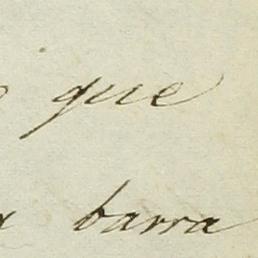 que
barra